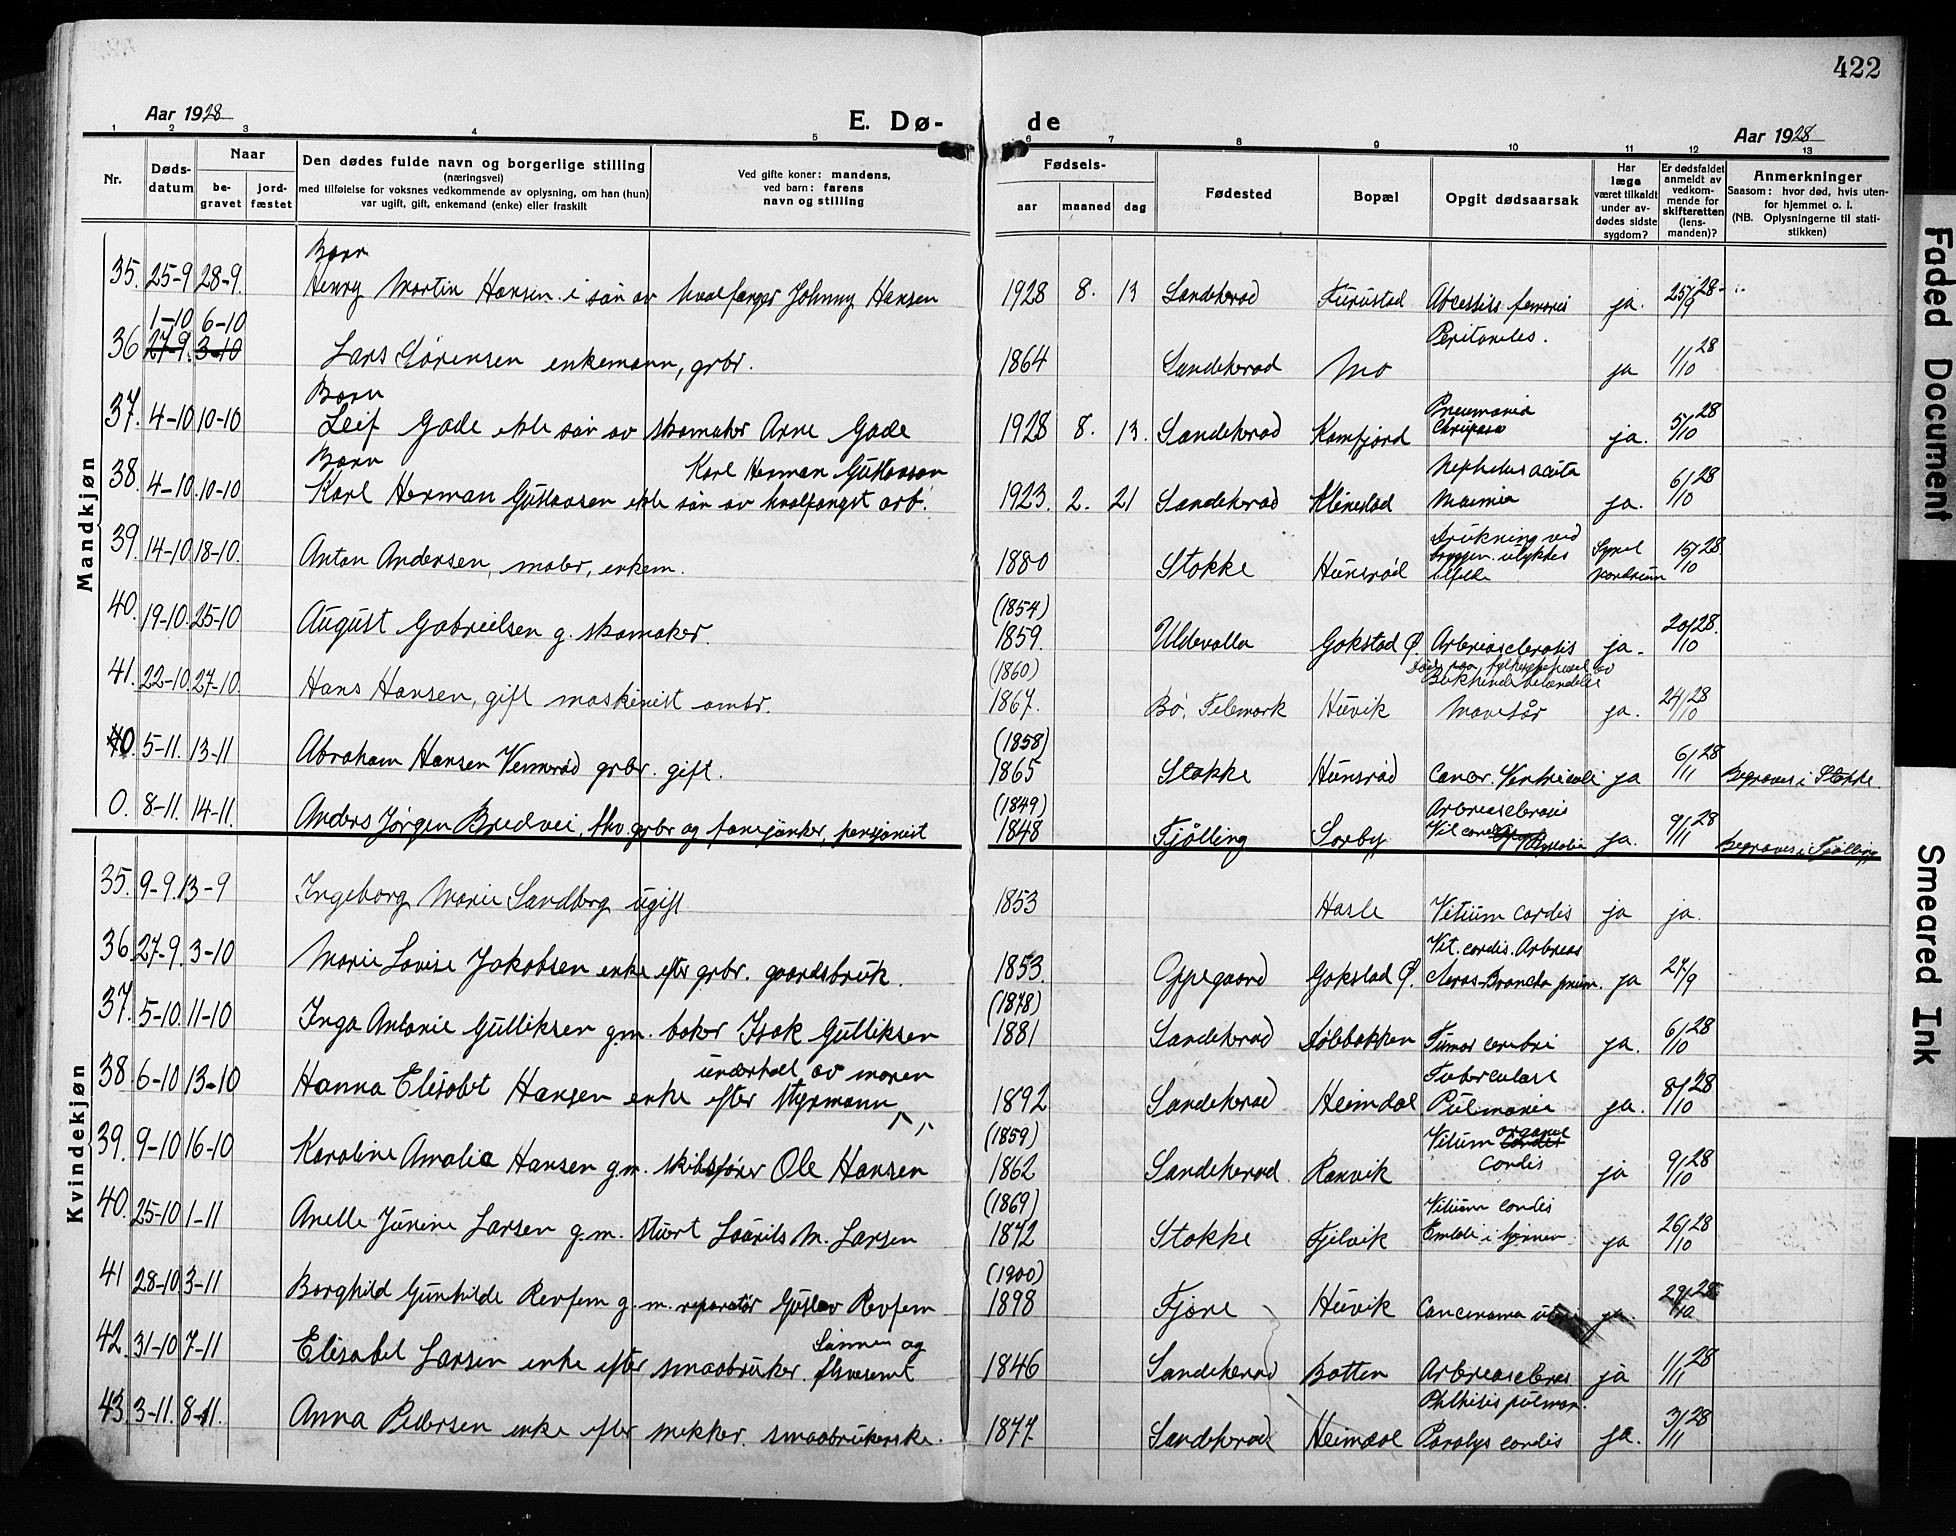 422
Aar 1928
E. Dø-
de
Aar 1928
1 2 3 4 5 6 7 8 9 10 11 12 13
Nr.
Døds-
datum
Naar
be-
gravet
jord-
fæstet
Den dødes fulde navn og borgerlige stilling
(næringsvei)
med tilføielse for voksnes vedkommende av oplysning, om han (hun)
var ugift, gift, enkemand (enke) eller fraskilt
Ved gifte koner: mandens,
ved barn: farens
navn og stilling
Fødsels-
aar
maaned
dag
Fødested
Bopæl
Opgit dødsaarsak
Har
læge
været tilkaldt
under av-
dødes sidste
sygdom?
Er dødsfaldet
anmeldt av
vedkom-
mende for
skifteretten
(lens-
manden)?
Anmerkninger
Saasom: hvor død, hvis uten-
for hjemmet o. l.
(NB. Oplysningerne til stati-
stikken)
Mandkjøn
Barn
35. 25-9 28-9. Henry Martin Hansen i søn av hvalfanger Johnny Hansen 1928 8. 13 Sandeherad Furustad Abcessus femoris ja. 25/9 28
1-10 6-10
36 27-9. 3-10 Lars Sørensen enkemann, grbr. 1864 Sandeherad Mo Peritonites. ja 1/10 28
Barn
37. 4-10 10-10 Leif Gade ekte søn av skomaker Arne Gade 1928 8. 13. Sandeherad Kamfjord Pneumonia Chruposa ja. 5/10 28
Barn Karl Herman Gustavsen
38. 4-10. 10-10 Karl Herman Gustavsen ekte søn av hvalfangst arb. 1923. 2. 21 Sandeherad Klinestad Nephitus acuta Uræmia ja. 6/10 28
39. 14-10. 18-10. Anton Andersen, maler, enkem. 1880 Stokke Hunsrød Drukning ved bryggen. ulykkes tilfelde Synet 15/10 28
40. 19-10. 25-10 August Gabrielsen g. skomaker. (1854) 1859. Uldevalla Gokstad Ø. Arterioasclerosis ja. 20/10 28.
41. 22-10. 27-10. Hans Hansen, gift maskinist ombr. (1860) 1867. Bø. Telemark Huvik Bukhindebetændelse Mavesår ja. 24/10 28
40. 5-11. 13-11 Abraham Hansen Vennerød grbr. gift. (1858) 1865 Stokke Hunsrød Cancr. Ventricoli ja 6/11 28 Begraves i Stokke.
0. 8-11. 14-11. Anders Jørgen Bredvei, fhv. grbr og fanejunker, pensjonist (1849) 1848 Tjølling Sørby Arterioasclerosis Vit cordis ja. 9/11 28 Begraves i Tjølling
Kvindekjøn
35. 9-9. 13-9 Ingeborg Marie Sandberg ugift 1853 Hasle Vitium Cordis ja ja.
36. 27-9. 3-10 Marie Lovise Jakobsen enke efter grbr. gaardsbruk. 1853. Oppegaard Gokstad Ø. Vit. cordis. Arterios cleros-Broncho pneum. ja 27/9
37. 5-10. 11-10 Inga Antonie Gulliksen g.m. baker Isak Gulliksen (1878) 1881 Sandeherad Dølebakken Tumor cerebri ja. 6/10 28
underholt av moren
38 6-10 13-10 Hanna Elisabt Hansen enke efter styrmann 1892 Sandeherad Heimdal Tuberculose Pulmonie ja. 8/10 28
39. 9-10 16-10 Karoline Amalia Hansen g.m. skibsfører Ole Hansen (1859) 1862 Sandeherad. Ranvik Vitium organ cordis ja 9/10 28
40. 25-10 1-11 Anelle Junine Larsen g.m. stuert Laurits M. Larsen (1869) 1872 Stokke Fjelvik Vitium cordis Emboli i hjernen ja 26/10 28
41 28-10 3-11 Borghild Gunhilde Revfem g.m. reparatør Gustav Revfem (1900) 1898 Tjøme Huvik Cancinoma ja. 29/10 28
42. 31-10 7-11 Elisabet Larsen enke efter smaabruker. Sønnen og flsvesemt 1846 Sandeherad Botten Arterioascleros ja 1/11 28
43. 3-11. 8-11. Anna Pedersen enke efter snekker. smaabrukerske. 1877. Sandeherad Heimdal Phthisis pulmon. Paralys cordis ja. 3/11 28
Faded Document
Smeared Ink